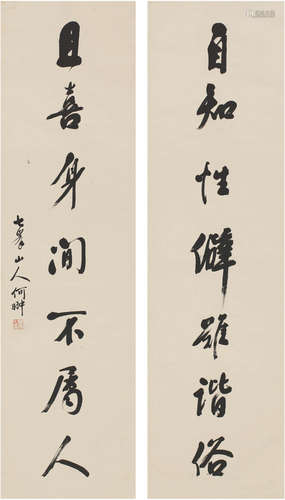 自知性僻難諧俗
且喜身閒不屬人
七峯山人何翀